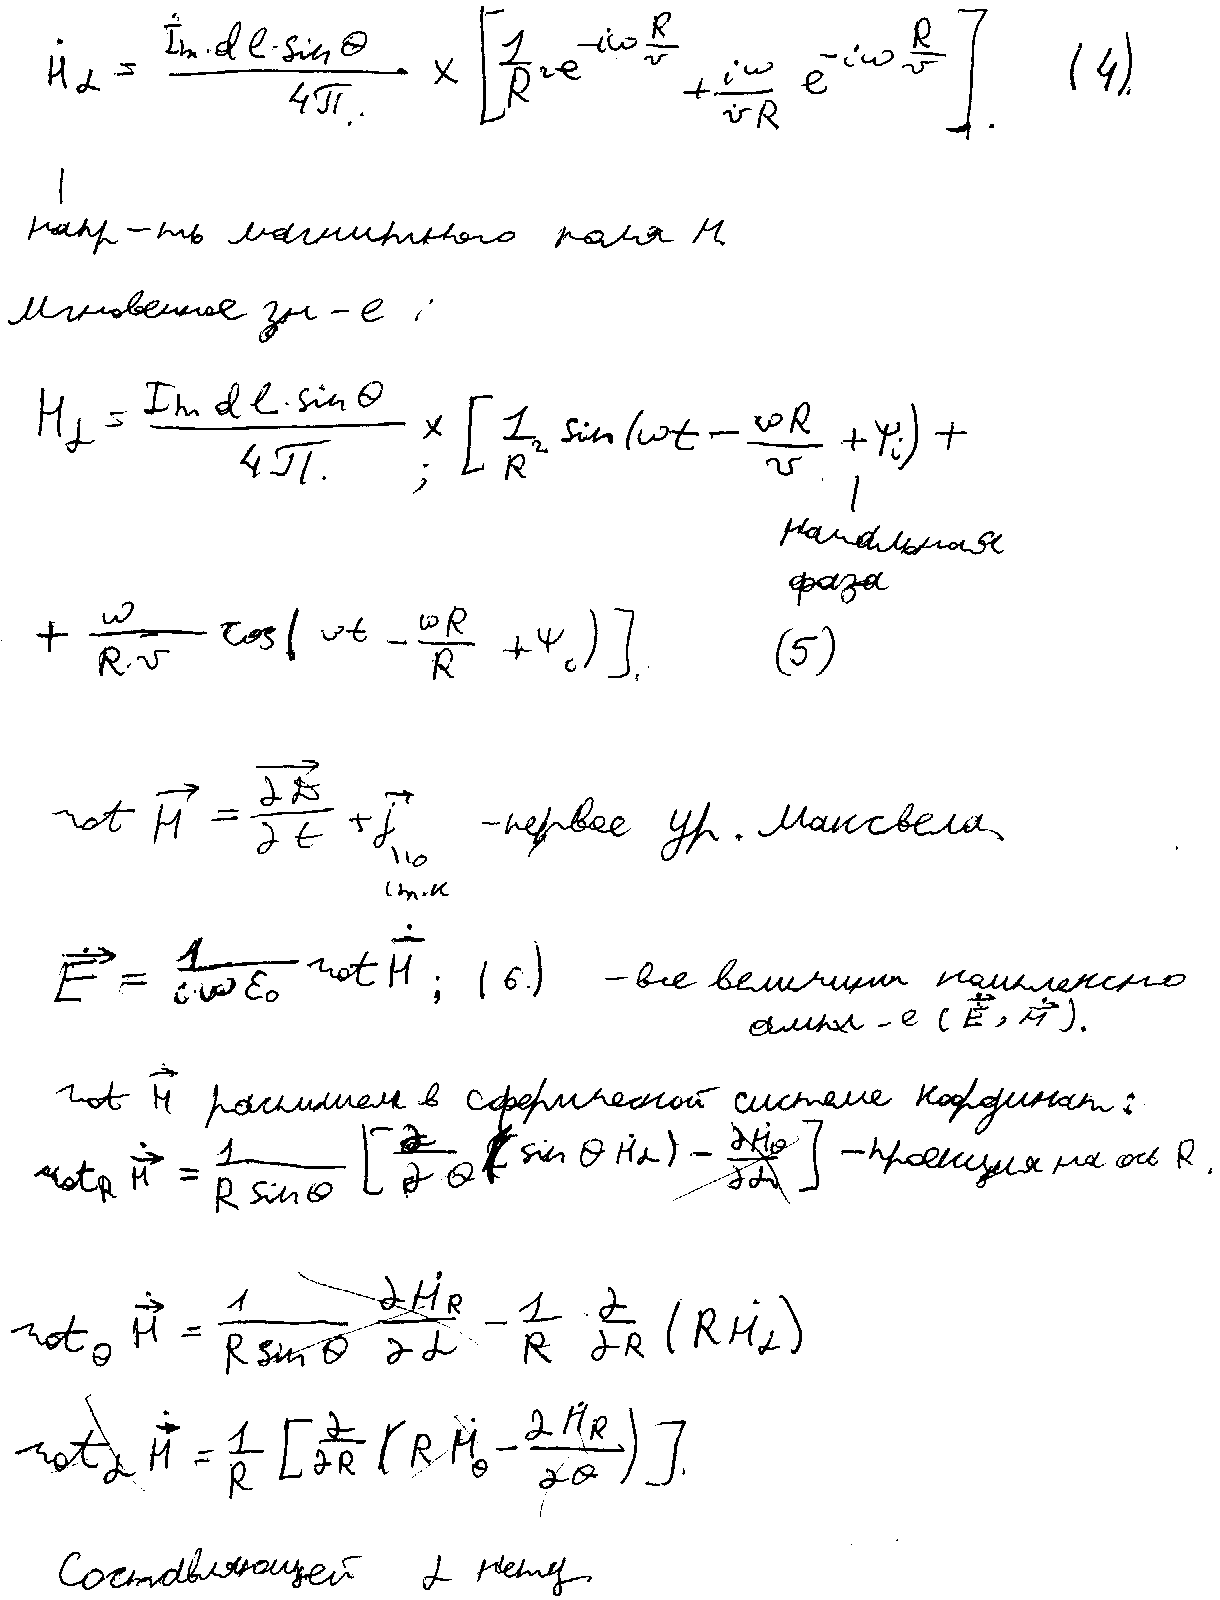 Ḣ_α = İm·dl·sinθ / 4π × [1/R² e^(-iω R/v) + iω/vR e^(-iω R/v)]. (4).
напр-ть магнитного поля H.
Мгновенное зн-е :
H_α = Im dl·sinθ / 4π. × ; [1/R² sin(ωt - ωR/v + ψi) +
начальная
фаза
+ ω/R·v cos(ωt - ωR/R + ψi)]. (5)
rot H⃗ = ∂D⃗/∂t + j⃗ - первое ур. Максвела.
E⃗ = 1/i·ωε₀ rot Ḣ⃗ ; (6.) - все величины комплексно
ампл-е (Ė⃗, Ḣ⃗).
rot H⃗ распишем в сферической системе координат:
rot_R Ḣ⃗ = 1/R sinθ [∂/∂θ (sinθ Ḣ_α) - ∂Ḣ_θ/∂α] - проекция на ось R.
rot_θ Ḣ⃗ = 1/R sinθ ∂Ḣ_R/∂α - 1/R ∂/∂R (RḢ_α)
rot_α Ḣ⃗ = 1/R [∂/∂R (RḢ_θ - ∂Ḣ_R/∂θ)].
Составляющей α нету.